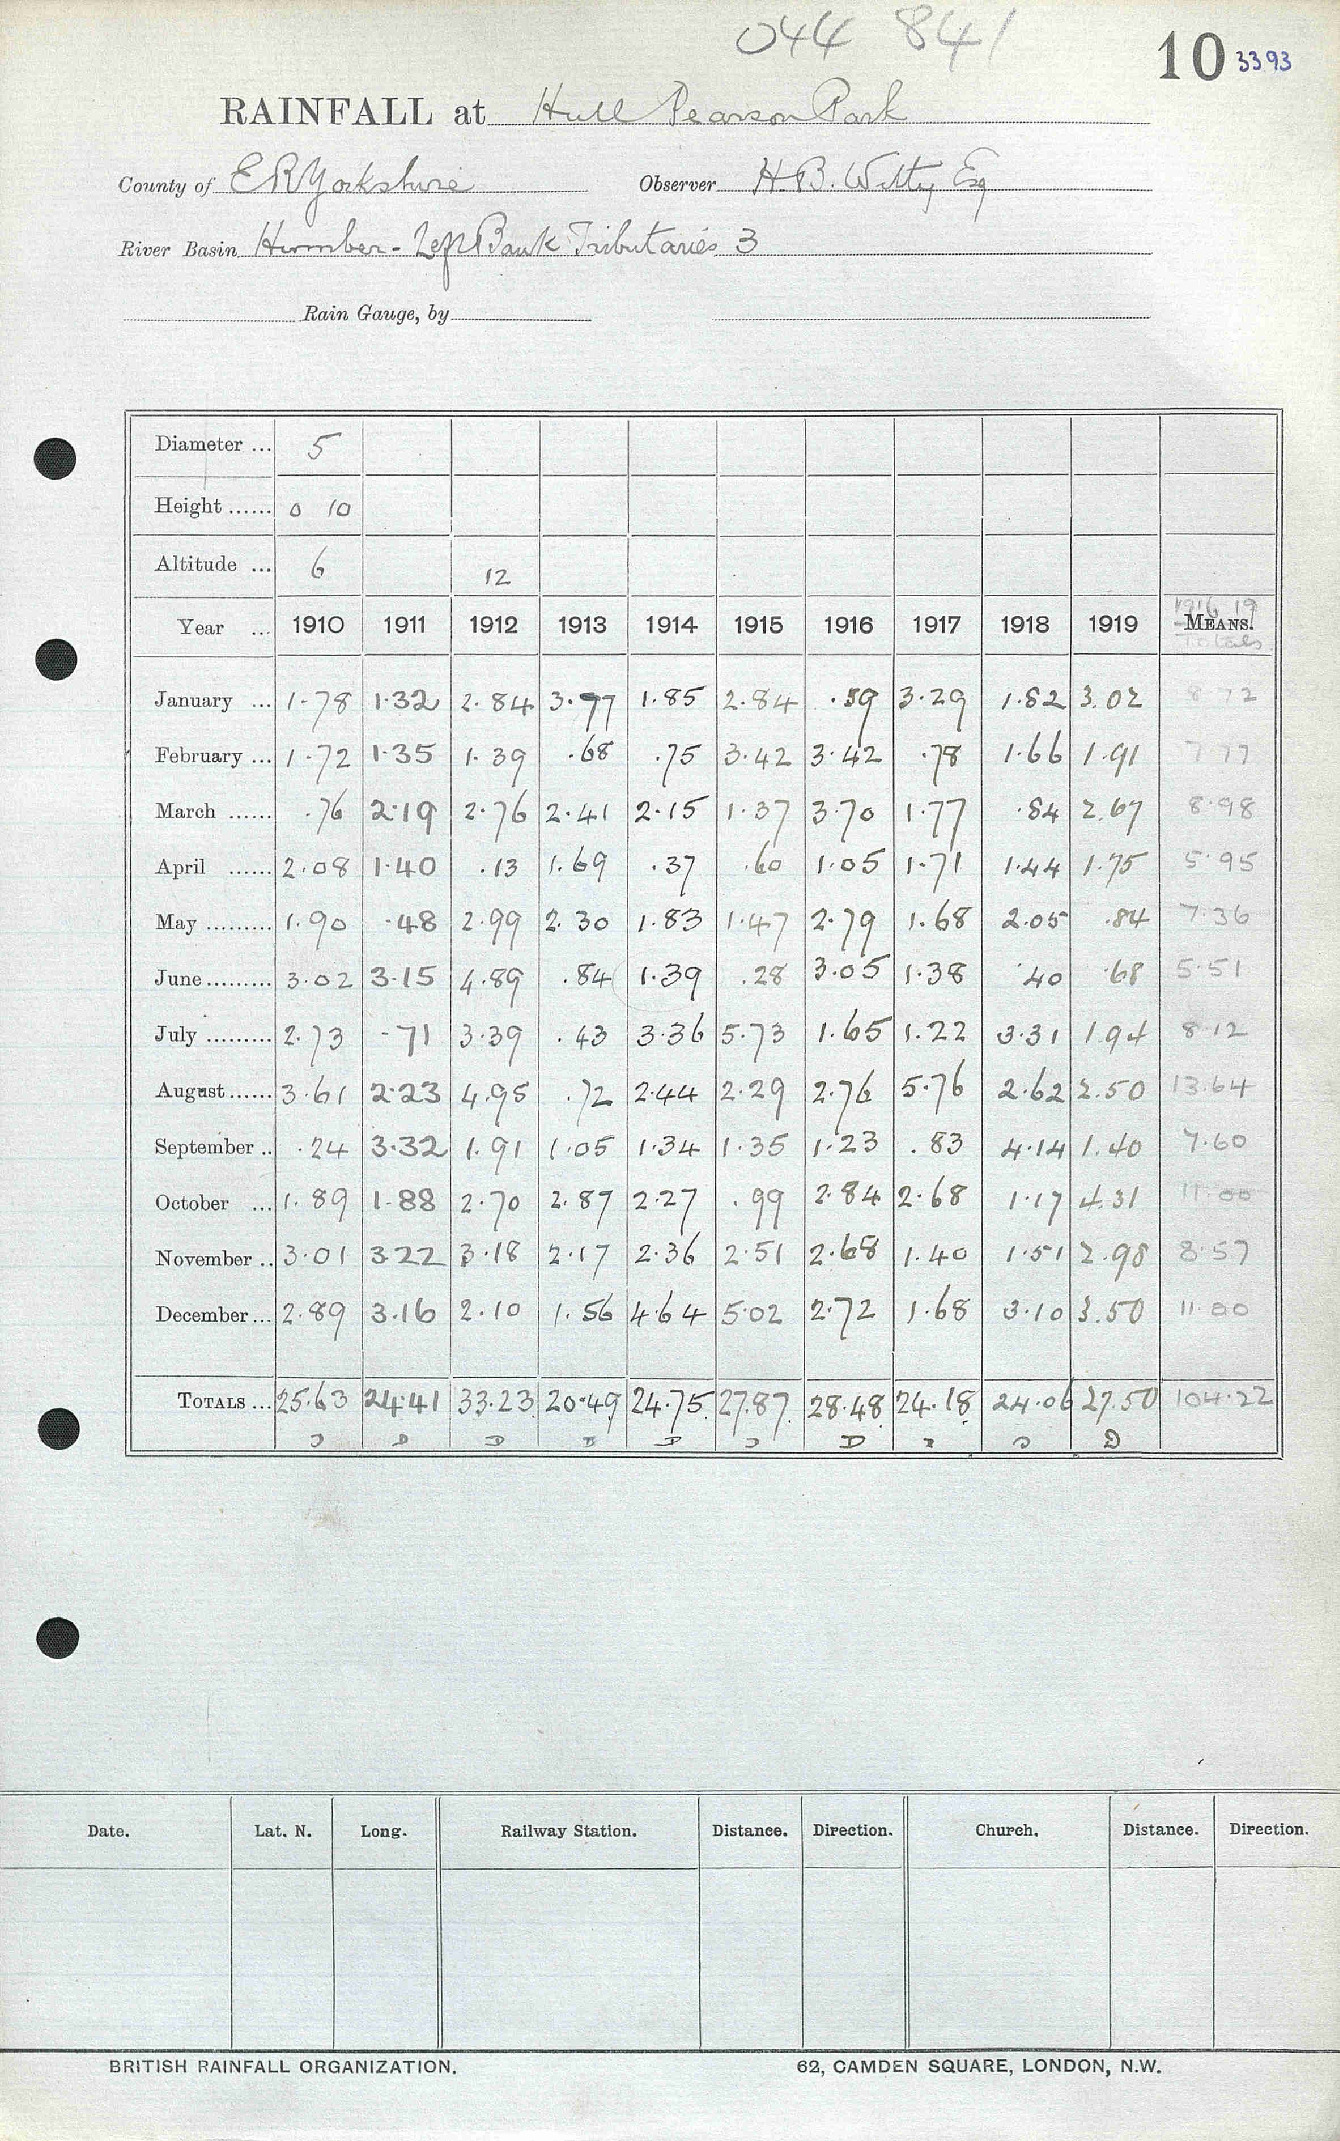 044 841
10 3393
RAINFALL at Hull Pearson Park
County of E R Yorkshire Observer H.B. Witty Esq
River Basin Humber - Left Bank Tributaries 3
Rain Gauge, by
Diameter ... 5
Height ...... 0 10
Altitude ... 6 12
Year ... 1910 1911 1912 1913 1914 1915 1916 1917 1918 1919 1916 19 MEANS. Totals
January ... 1.78 1.32 2.84 3.77 1.85 2.84 .59 3.29 1.82 3.02 8 72
February ... 1.72 1.35 1.39 .68 .75 3.42 3.42 .78 1.66 1.91 7 77
March ...... .76 2.19 2.76 2.41 2.15 1.37 3.70 1.77 .84 2.67 8.98
April ...... 2.08 1.40 .13 1.69 .37 .60 1.05 1.71 1.44 1.75 5.95
May ......... 1.90 .48 2.99 2.30 1.83 1.47 2.79 1.68 2.05 .84 7.36
June ......... 3.02 3.15 4.89 .84 1.39 .28 3.05 1.38 .40 .68 5.51
July ......... 2.73 .71 3.39 .43 3.36 5.73 1.65 1.22 3.31 1.94 8.12
August ...... 3.61 2.23 4.95 .72 2.44 2.29 2.76 5.76 2.62 2.50 13.64
September .. .24 3.32 1.91 1.05 1.34 1.35 1.23 .83 4.14 1.40 7.60
October ... 1.89 1.88 2.70 2.87 2.27 .99 2.84 2.68 1.17 4.31 11.00
November .. 3.01 3.22 3.18 2.17 2.36 2.51 2.68 1.40 1.51 2.98 8.57
December ... 2.89 3.16 2.10 1.56 4.64 5.02 2.72 1.68 3.10 3.50 11.00
TOTALS ... 25.63 24.41 33.23 20.49 24.75 27.87 28.48 24.18 24.06 27.50 104.22
Date. Lat. N. Long. Railway Station. Distance. Direction. Church. Distance. Direction.
BRITISH RAINFALL ORGANIZATION. 62, CAMDEN SQUARE, LONDON, N.W.